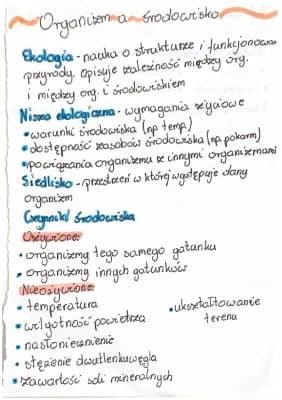 Organizm a środowisko
Ekologia - nauka o strukturze i funkcjonowa
przyrody. Opisuje zależność między org.
i między org. i środowiskiem
Nisza ekologiczna - wymagania życiowe
• warunki środowiska (np. temp.)
• dostępność zasobów środowiska (np. pokarm)
• powiązania organizmu ze innymi organizmami
Siedlisko - przestrzeń w której występuje dany
organizm
Czynniki środowiska
Ożywione:
• organizmy tego samego gatunku
• organizmy innych gatunków
Nieożywione:
• temperatura
• ukształtowanie
terenu
• wilgotność powietrza
• nasłonecznienie
• stężenie dwutlenku węgla
• zawartość soli mineralnych